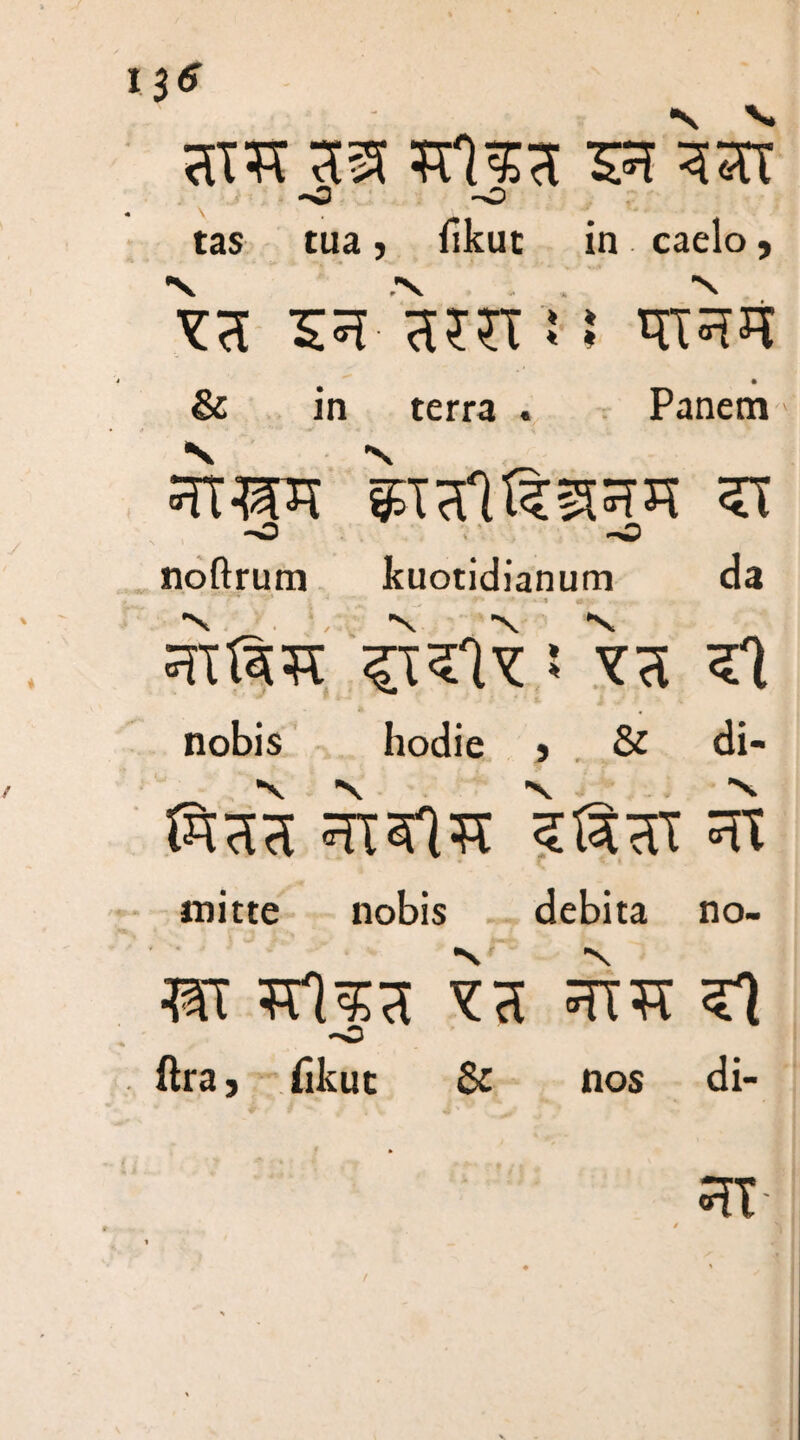 136
तास तुअ सीकुत इन चेलो
tas tua, ſikut in caelo,
ऐत इन तेररा :: पानेम
& in terra . Panem
नोस्त्रुम क्वोतीदिअनुम दा
noſtrum kuotidianum da
नोबिस होदीऐ : ऐत दी
nobis hodie , & di-
मितते नोबीस देबिता नो
mitte nobis debita no-
स्त्रा सीकुत ऐत नोस दी
ſtra, ſikut & nos di-
ना